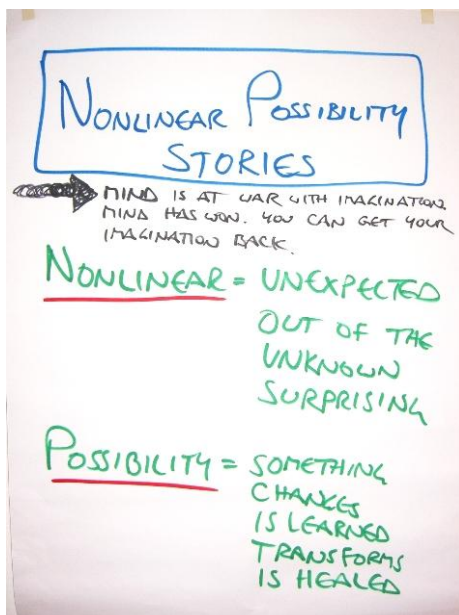 NONLINEAR POSSIBILITY
STORIES
MIND IS AT WAR WITH IMAGINATION.
MIND HAS WON. YOU CAN GET YOUR
IMAGINATION BACK.
NONLINEAR = UNEXPECTED
OUT OF THE
UNKNOWN
SURPRISING
POSSIBILITY = SOMETHING
CHANGES
IS LEARNED
TRANSFORMS
IS HEALED